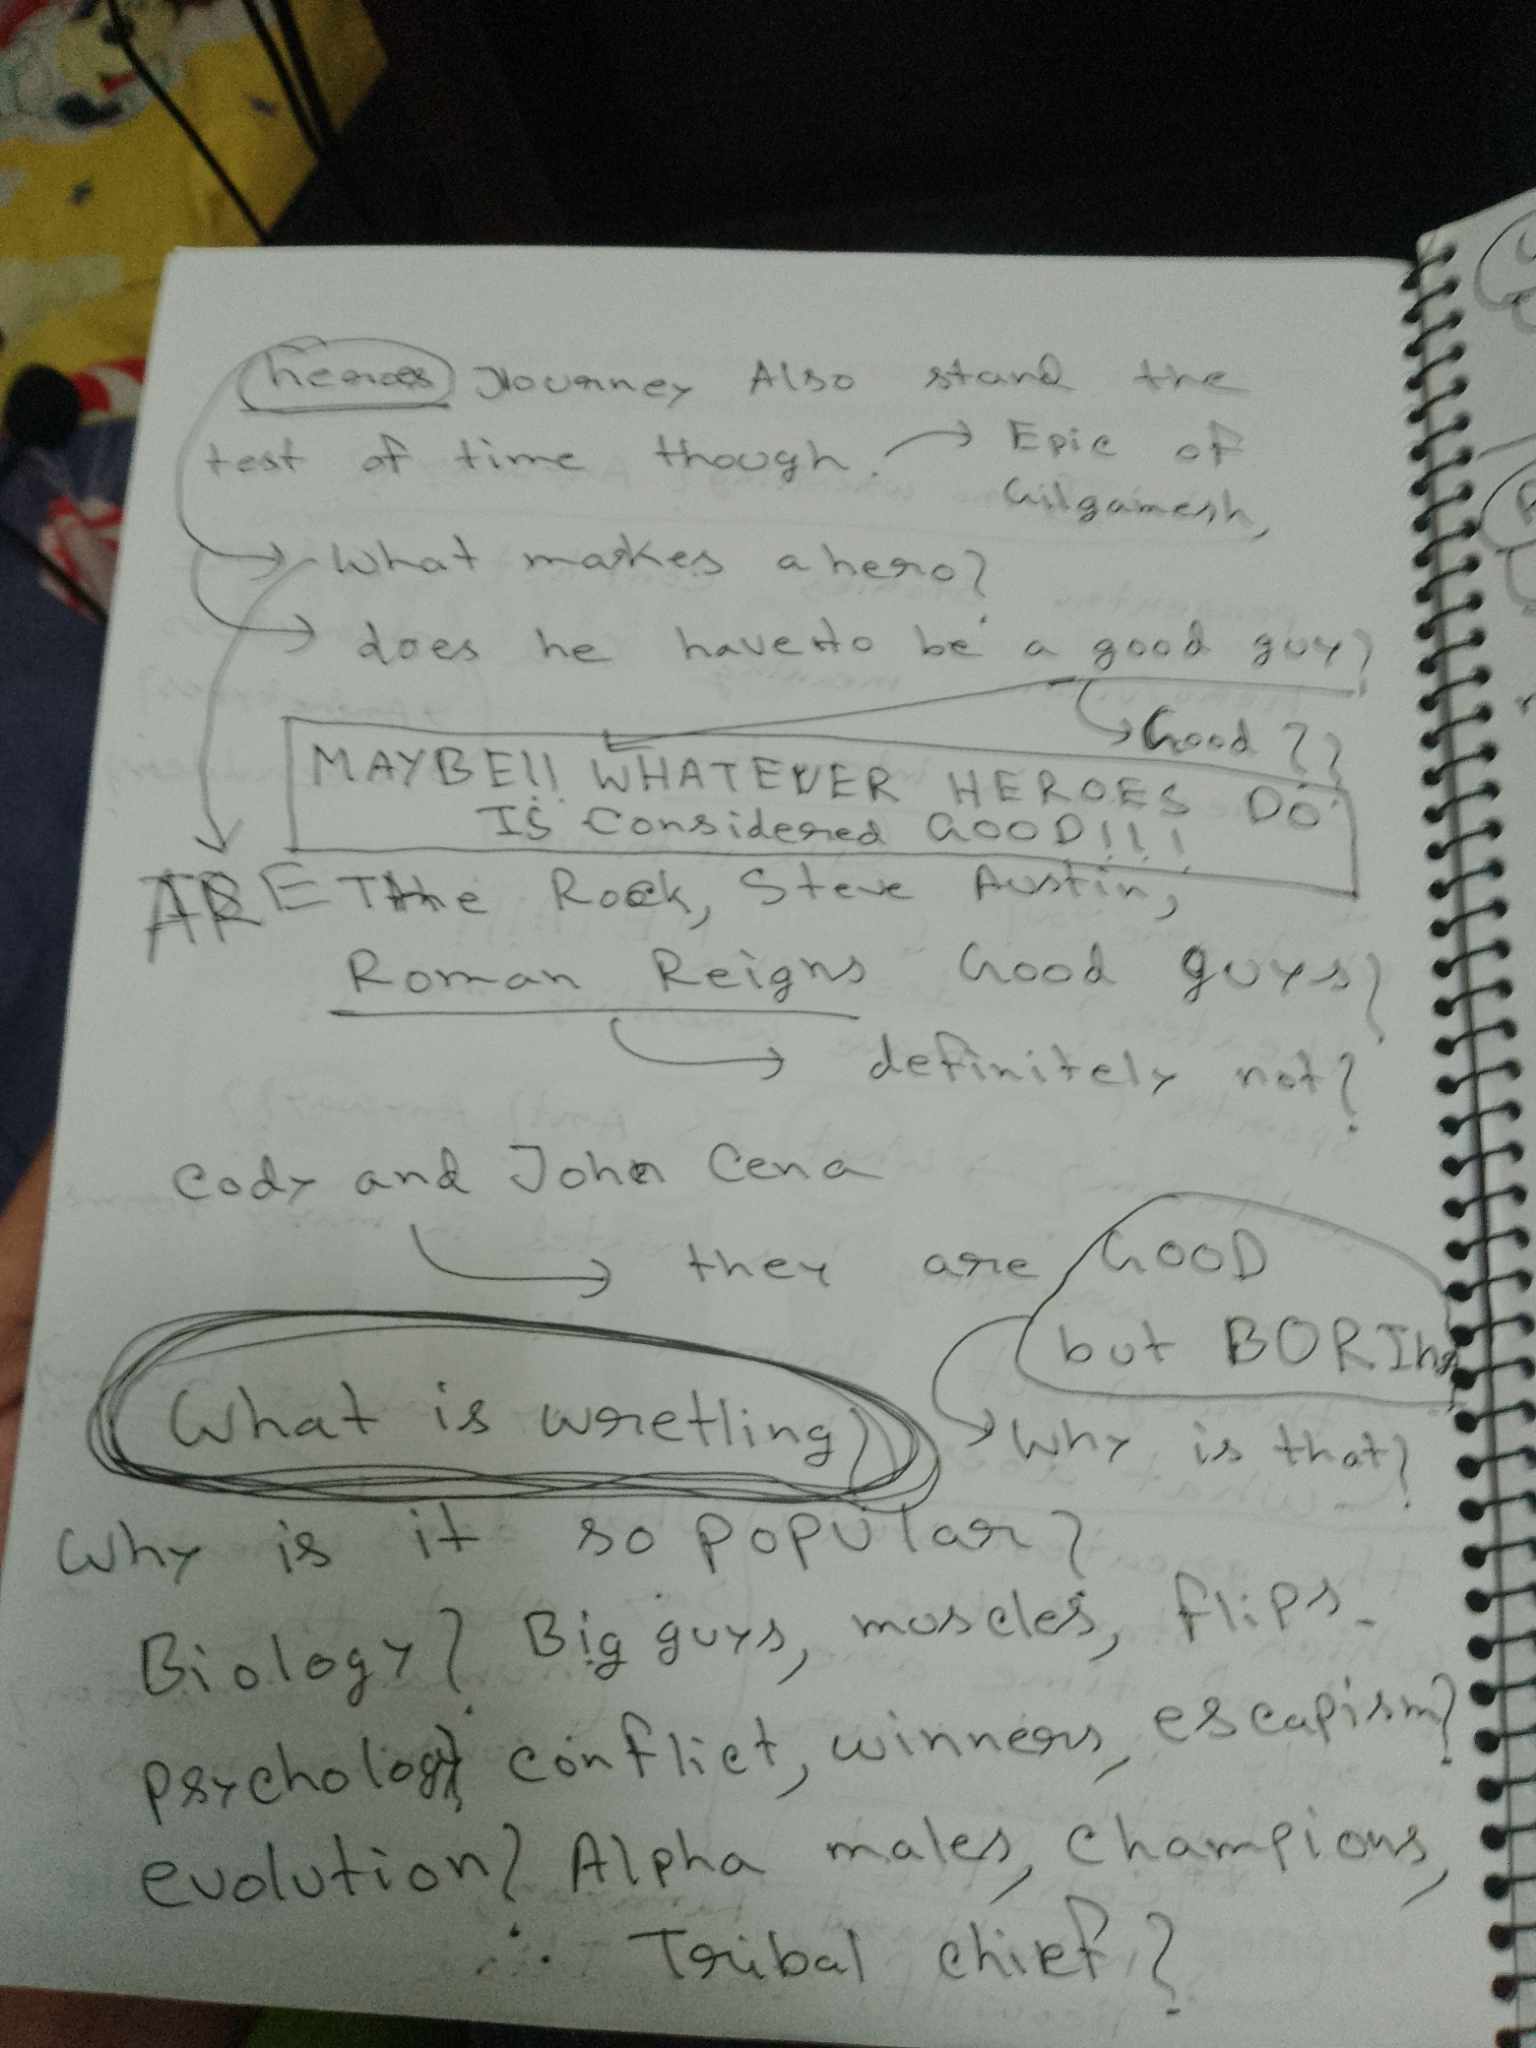 heroes Journey Also stand the
test of time though. → Epic of
Gilgamesh,
→ What makes a hero?
→ does he have to be a good guy?
→ Good??
MAYBE!! WHATEVER HEROES DO
IS Considered GOOD!!!
ARE The Rock, Steve Austin,
Roman Reigns Good guys?
→ definitely not?
Cody and John Cena
→ they are GOOD
but BORING
→ Why is that?
What is wretling?
Why is it so popular?
Biology? Big guys, muscles, flips.
psychology, conflict, winners, escapism?
evolution? Alpha males, Champions,
∴ Tribal chief?